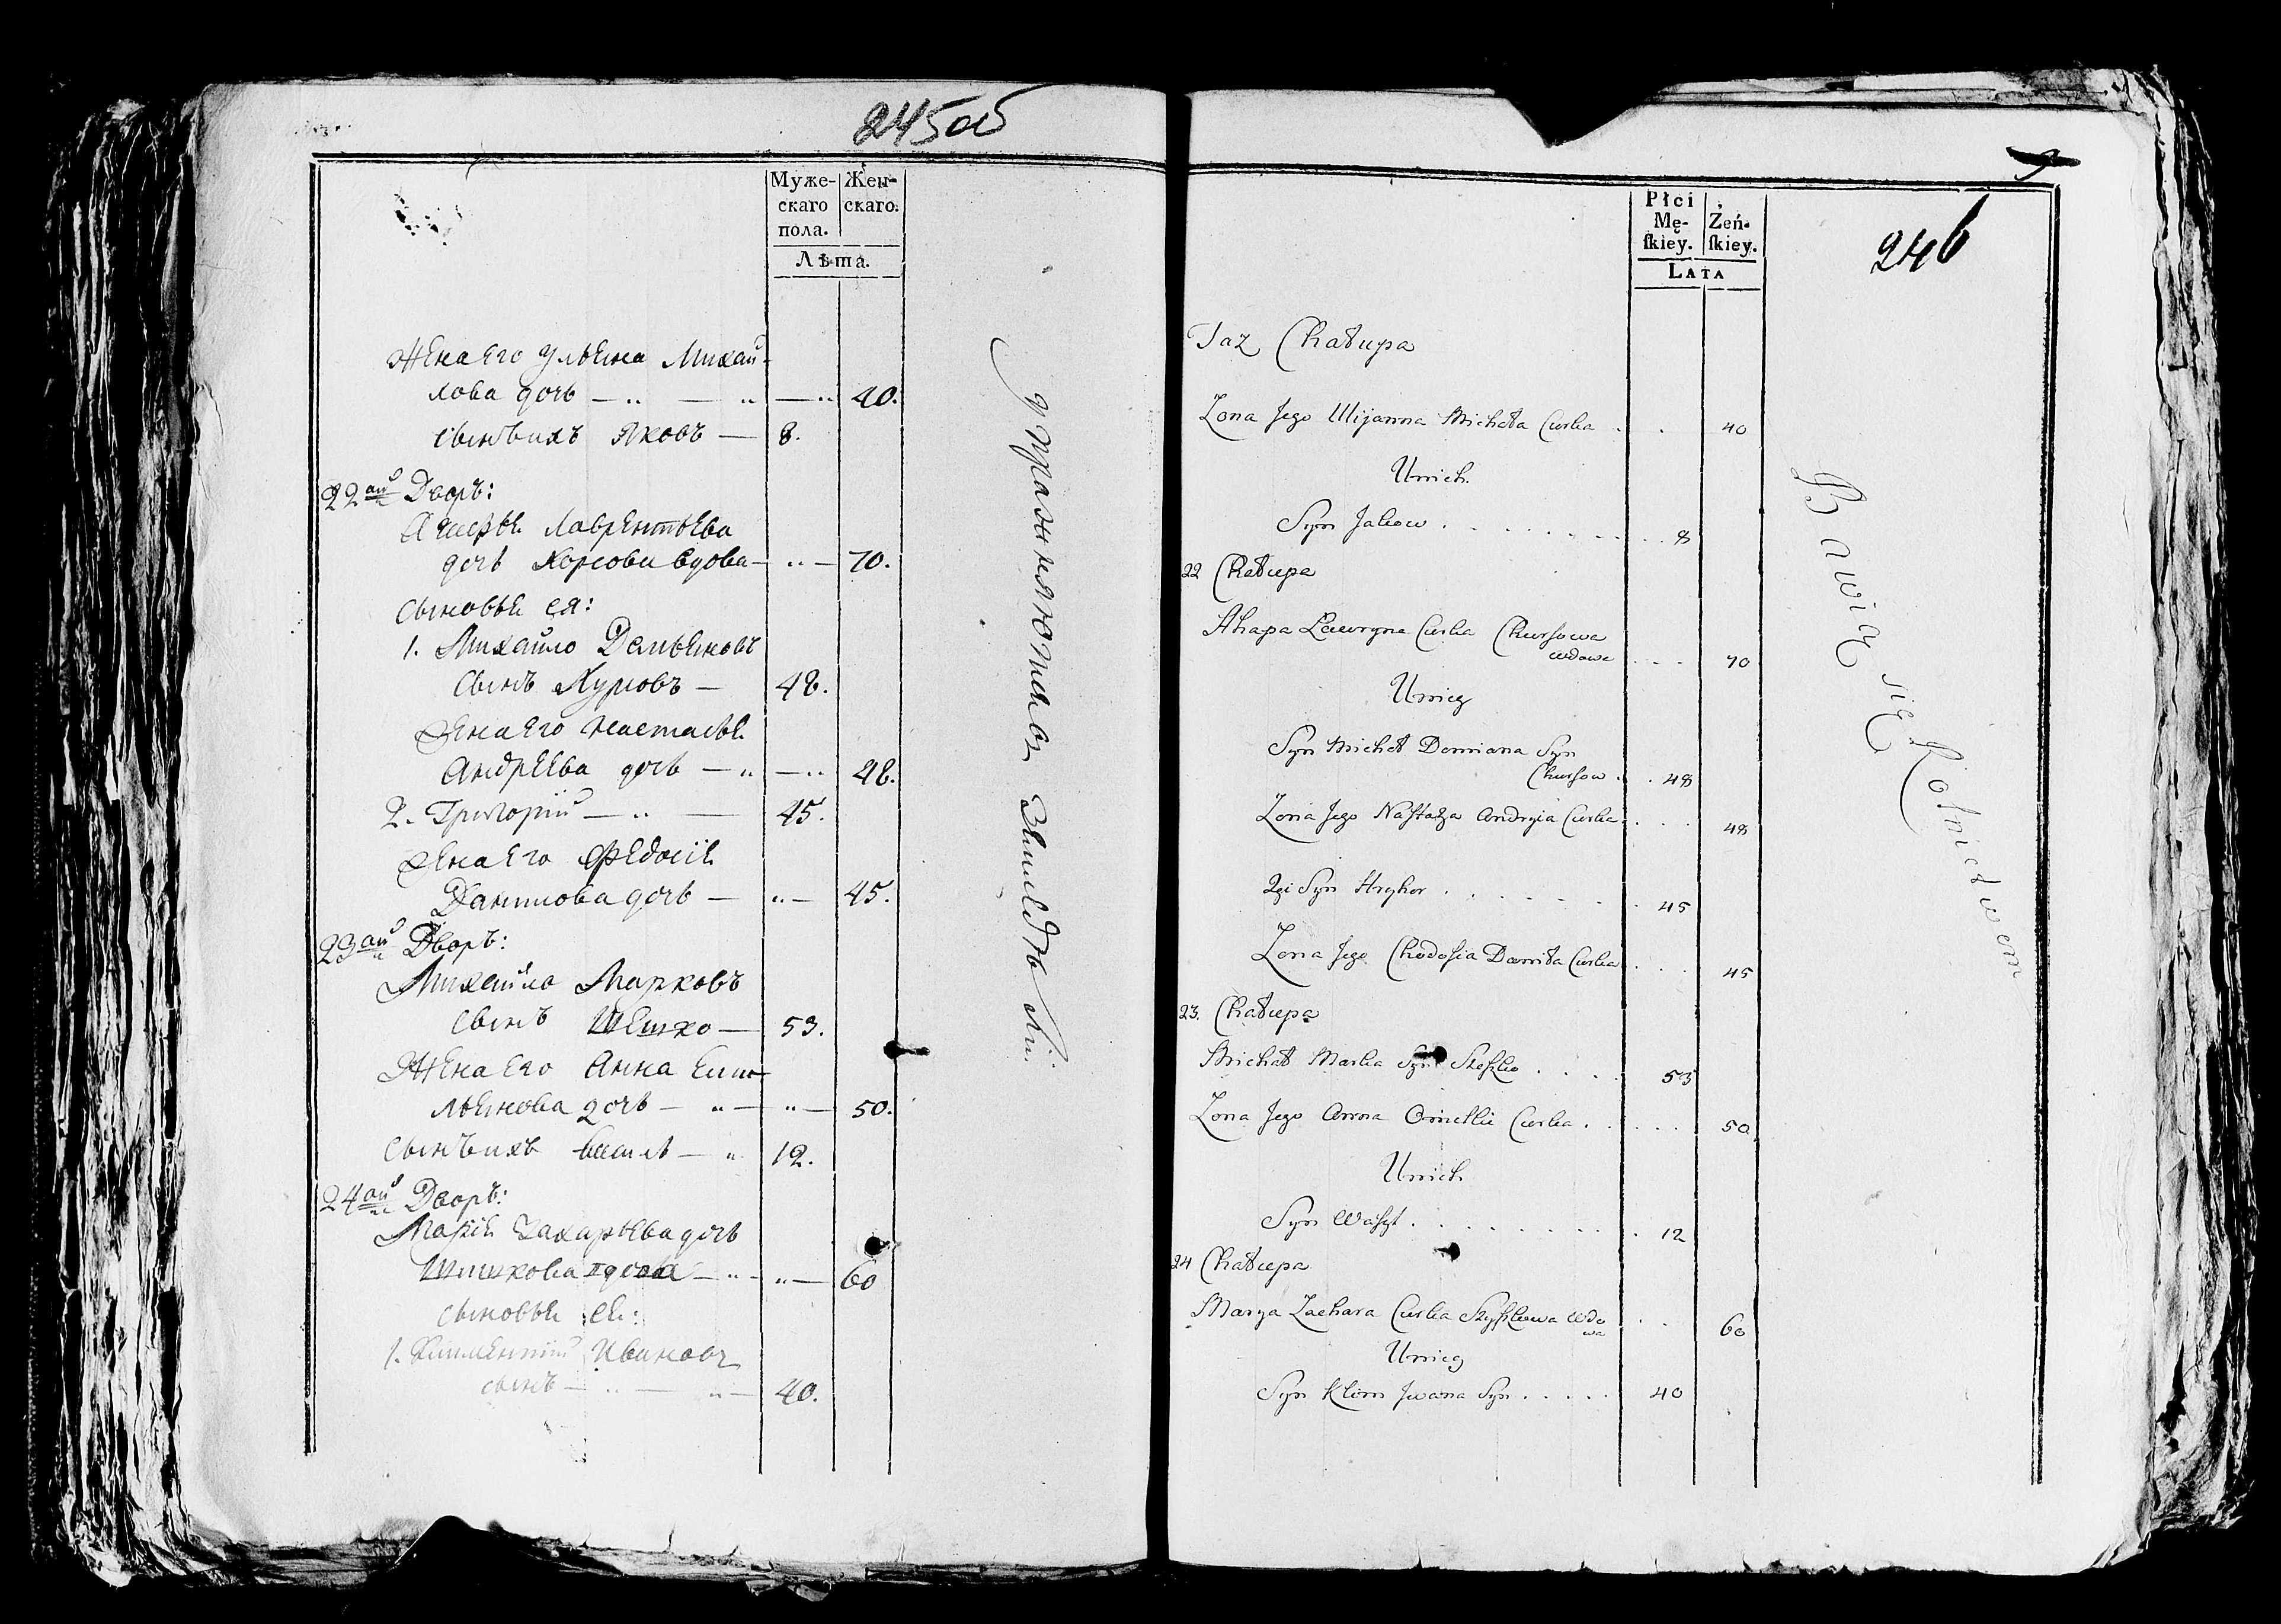 245 об
Муже-
скаго
пола.
Жен-
скаго.
Лѣта.
Жена Его Ульяна Михай-
лова дочь — „ — „ — „ 40.
сынъ ихъ Яковъ — 8.
22ой Дворъ:
Агафья Лаврентьева
дочь Хорсова вдова — „ — 70.
сыновья ея:
1. Михайло Демьяновъ
сынъ Хурсовъ — 48.
Жена Его Настасья
Андреева дочь — „ — „ 48.
2. Григорий — „ — 45.
Жена Его Федосия
Данилова дочь — „ — 45.
23ой Дворъ:
Михайло Марковъ
сынъ Шешко — 53.
Жена Его Анна Еми-
льянова дочь — „ — „ — 50.
сынъ ихъ Василь — „ 12.
24ой Дворъ:
Мария Захарьева дочь
Шишкова вдова — „ — „ — 60
сыновья ея:
1. Климентий Ивановъ
сынъ — „ — „ — 40.
Упражняются Земледѣли.
246
Płci
Mę-
ſkiey.
Żeń-
ſkiey.
Lata
Taz Chałupa
Zona Jego Ulijanna Michała Curka . . 40
Unich
Syn Jakow . . . . . . . . 8
22 Chałupa
Ahapa Lawryna Curka Chursowa
wdowa . . . 70
Unieg
Syn Michał Demiana Syn
Chursow . . 48
Zona Jego Nastazya Andryia Curka . . . 48
2gi Syn Hryhor . . . . . . . 45
Zona Jego Chodosia Daniła Curka . . . 45
23. Chałupa
Michał Marka Syn Szeszko . . . . 53
Zona Jego Anna Omelki Curka . . . . . 50
Unich
Syn Wasyl . . . . . . . . . 12
24 Chałupa
Marya Zachara Curka Szyszkowa wdo
wa . . 60
Unieg
Syn Klim Jwana Syn . . . . . 40
Bawią się Rolnictwem